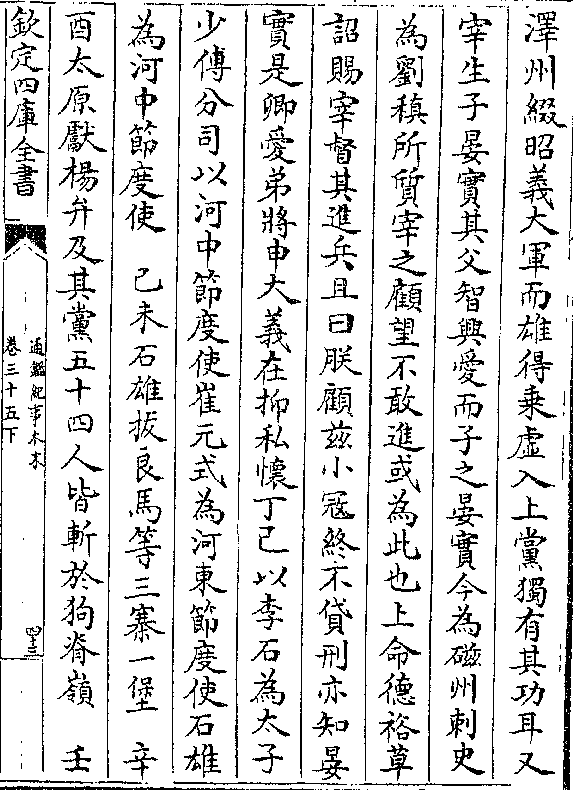 澤州綴昭義大軍而雄得乗虚入上黨獨有其功耳又
宰生子晏實其父智興愛而子之晏實今為磁州刺史
為劉稹所質宰之顧望不敢進或為此也上命德裕草
詔賜宰督其進兵且曰朕顧茲小冦終不貸刑亦知晏
實是卿愛弟將申大義在抑私懷丁己以李石為太子
少傅分司以河中節度使崔元式為河東節度使石雄
為河中節度使　己未石雄拔良馬等三寨一堡　辛
酉太原獻楊弁及其黨五十四人皆斬於狗脊嶺　壬
欽定四庫全書
通鑑紀事本末
卷三十五下
四十三